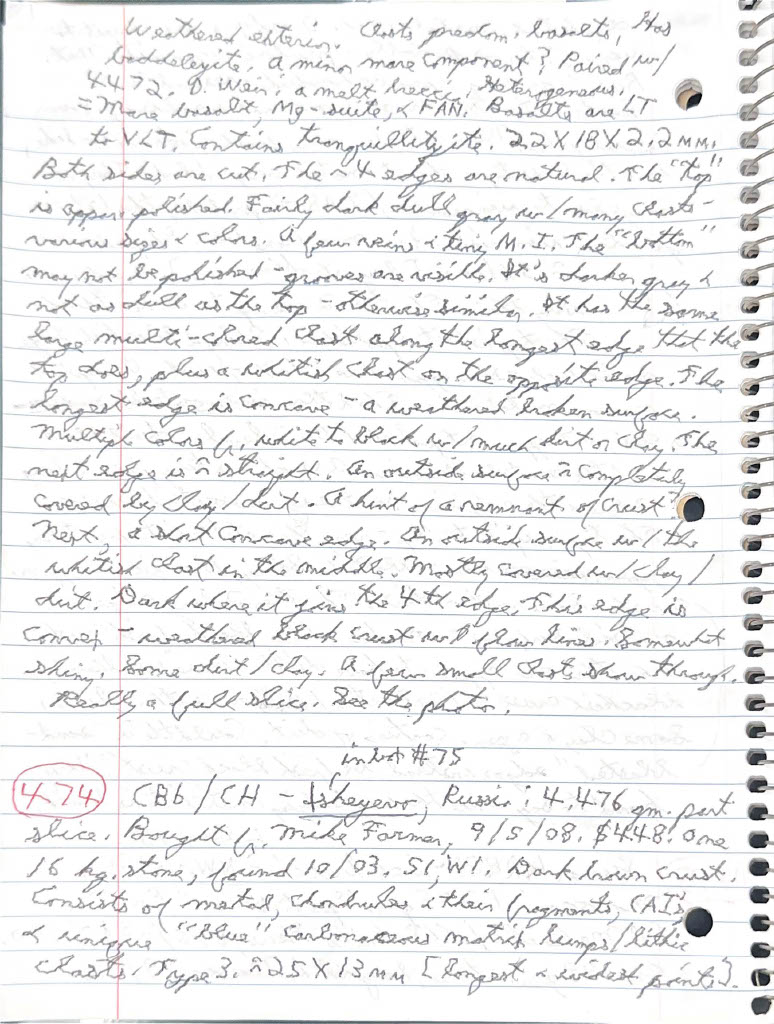 Weathered exterior. Clasts predom. basalts, Has
baddeleyite. A minor mare component? Paired w/
4472. D. Weir: a melt brecc., Heterogeneous.
= Mare basalt, Mg-suite, & FAN. Basalts are LT
to VLT. Contains tranquillityite. 22 X 18 X 2.2 MM.
Both sides are cut. The ~ 4 edges are natural. The "top"
is appar. polished. Fairly dark dull gray w/ many clasts -
various sizes & colors. A few veins & tiny M.I. The "bottom"
may not be polished - grooves are visible. It's darker gray &
not as dull as the top - otherwise similar. It has the same
large multi-colored clast along the longest edge that the
top does, plus a whitish clast on the opposite edge. The
longest edge is concave - a weathered broken surface.
Multiple colors fr. white to black w/ much dirt or clay. The
next edge is ~ straight. An outside surface ~ completely
covered by clay/dirt. A hint of a remnant of crust?
Next, a short concave edge. An outside surface w/ the
whitish clast in the middle. Mostly covered w/ clay/
dirt. Dark where it joins the 4th edge. This edge is
convex - weathered black crust w/ flow lines. Somewhat
shiny. Some dirt/clay. A few small clasts show through.
Really a full slice. See the photos.
in lot #75
474 CBb/CH - Isheyevo, Russia: 4.476 gm. part
slice. Bought fr. Mike Farmer, 9/5/08. $448. One
16 kg. stone, found 10/03. S1, W1. Dark brown crust.
Consists of metal, chondrules & their fragments, CAI's
& unique "blue" carbonaceous matrix lumps/lithic
clasts. Type 3. ~ 25 X 13 MM [longest & widest points].